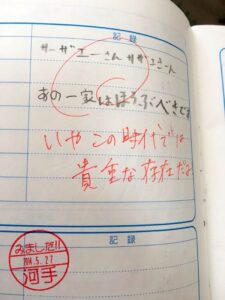 記録
サーザエーさん サザエさーん
あの一家はほろぶべきです
いやこの時代では
貴重な存在だよ
記録
みました!!
2014.5.27
河手